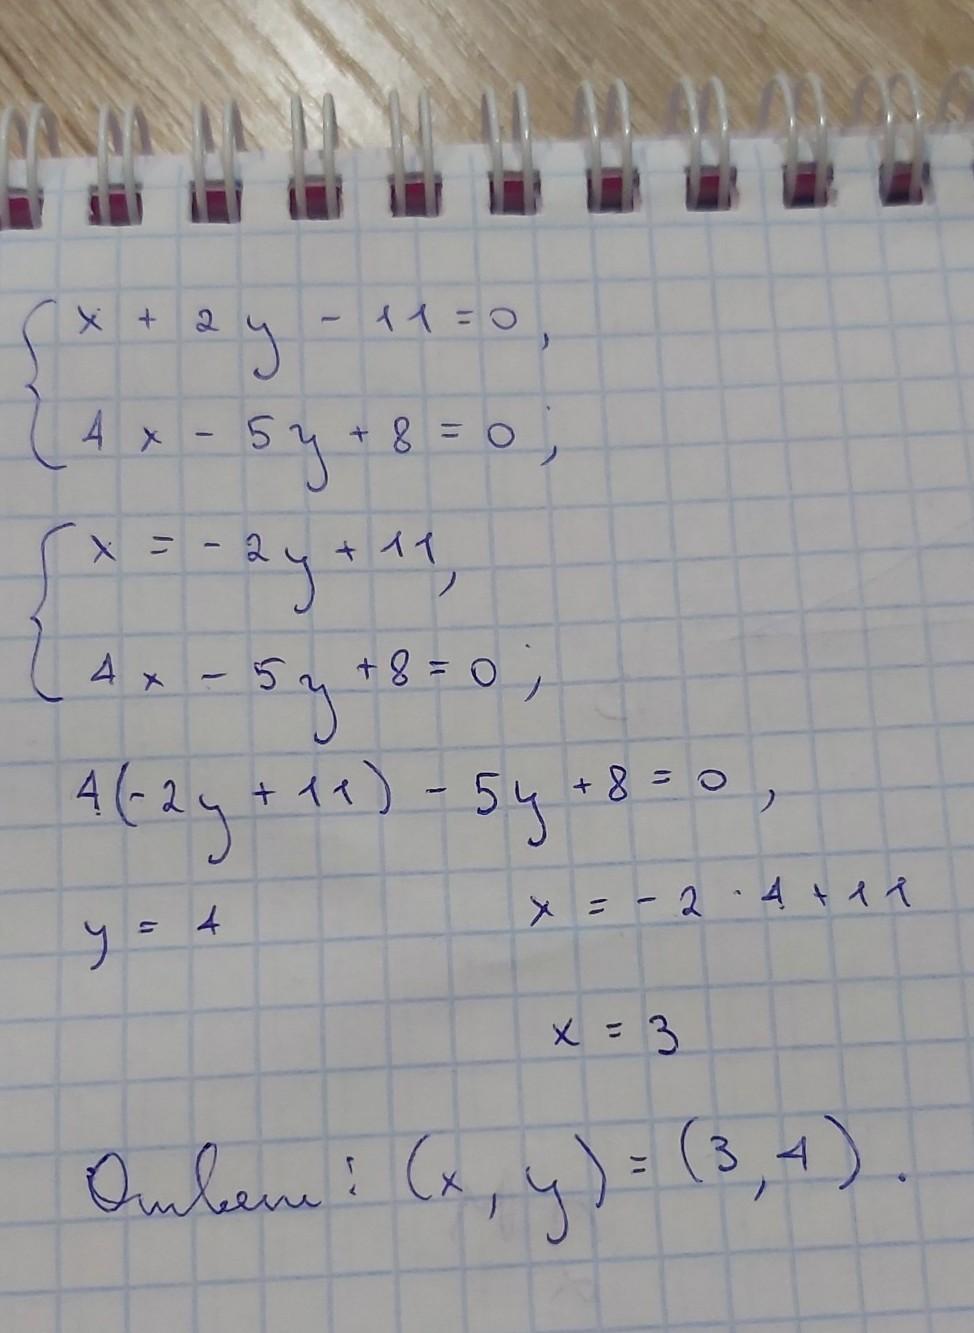 x + 2y - 11 = 0,
4x - 5y + 8 = 0;
x = - 2y + 11,
4x - 5y + 8 = 0;
4(-2y + 11) - 5y + 8 = 0,
y = 4 x = - 2 · 4 + 11
x = 3
Ответ: (x, y) = (3, 4).